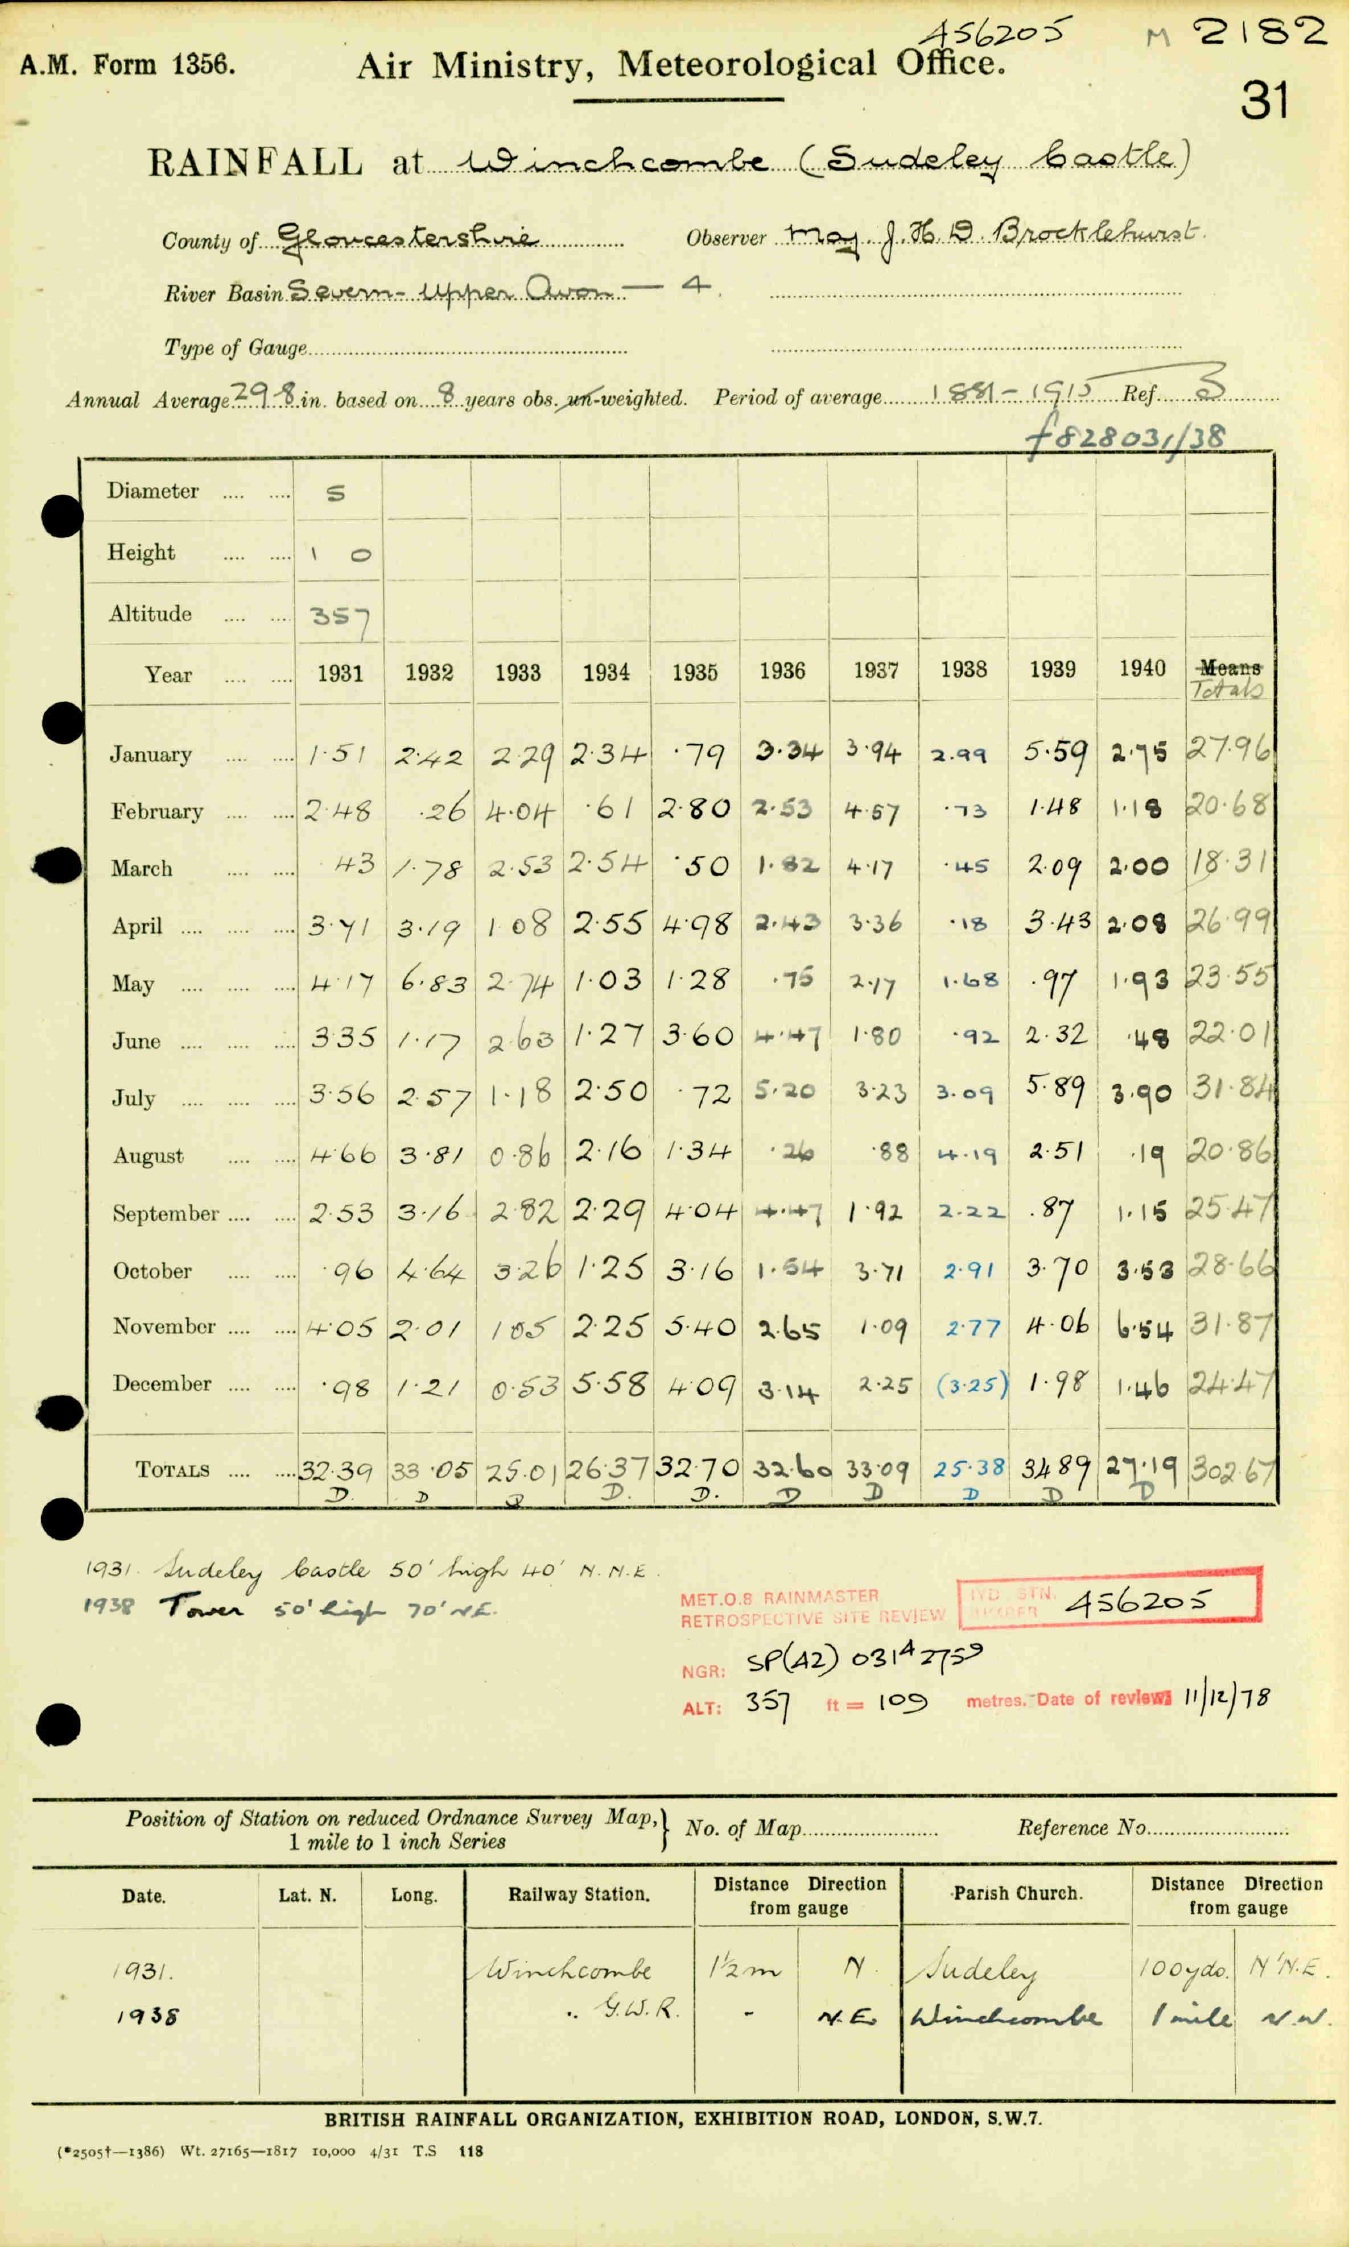 456205 M 2182
A.M. Form 1356. Air Ministry, Meteorological Office.
31
RAINFALL at Winchcombe (Sudeley Castle)
County of Gloucestershire Observer Maj. J. H. D. Brocklehurst.
River Basin Severn - Upper Avon — 4
Type of Gauge
Annual Average 29.8 in. based on 8 years obs. un-weighted. Period of average 1881-1915 Ref. 3
f828031/38
Diameter 5
Height 1 0
Altitude 357
Year 1931 1932 1933 1934 1935 1936 1937 1938 1939 1940 Means
Totals
January 1.51 2.42 2.29 2.34 .79 3.34 3.94 2.99 5.59 2.75 27.96
February 2.48 .26 4.04 .61 2.80 2.53 4.57 .73 1.48 1.18 20.68
March 43 1.78 2.53 2.54 .50 1.82 4.17 .45 2.09 2.00 18.31
April 3.71 3.19 1.08 2.55 4.98 2.43 3.36 .18 3.43 2.08 26.99
May 4.17 6.83 2.74 1.03 1.28 .75 2.17 1.68 .97 1.93 23.55
June 3.35 1.17 2.63 1.27 3.60 4.47 1.80 .92 2.32 .48 22.01
July 3.56 2.57 1.18 2.50 .72 5.20 3.23 3.09 5.89 3.90 31.84
August 4.66 3.81 0.86 2.16 1.34 .26 .88 4.19 2.51 .19 20.86
September 2.53 3.16 2.82 2.29 4.04 4.47 1.92 2.22 .87 1.15 25.47
October .96 4.64 3.26 1.25 3.16 1.54 3.71 2.91 3.70 3.53 28.66
November 4.05 2.01 1.05 2.25 5.40 2.65 1.09 2.77 4.06 6.54 31.87
December .98 1.21 0.53 5.58 4.09 3.14 2.25 (3.25) 1.98 1.46 24.47
TOTALS 32.39 33.05 25.01 26.37 32.70 32.60 33.09 25.38 34.89 27.19 302.67
D. D D D. D. D D D D D
1931. Sudeley Castle 50' high 40' N.N.E.
1938 Tower 50' high 70' NE.
MET.O.8 RAINMASTER
RETROSPECTIVE SITE REVIEW
STN. NUMBER 456205
NGR: SP(42) 0314 2759
ALT: 357 ft = 109 metres. Date of review 11/12/78
Position of Station on reduced Ordnance Survey Map, 1 mile to 1 inch Series } No. of Map Reference No.
Date. Lat. N. Long. Railway Station. Distance Direction from gauge Parish Church. Distance Direction from gauge
1931. Winchcombe 1½m N. Sudeley 100yds. N'N.E.
1938 .. G.W.R. - N.E. Winchcombe 1 mile N.W.
BRITISH RAINFALL ORGANIZATION, EXHIBITION ROAD, LONDON, S.W.7.
(*2505†—1386) Wt. 27165—1817 10,000 4/31 T.S 118